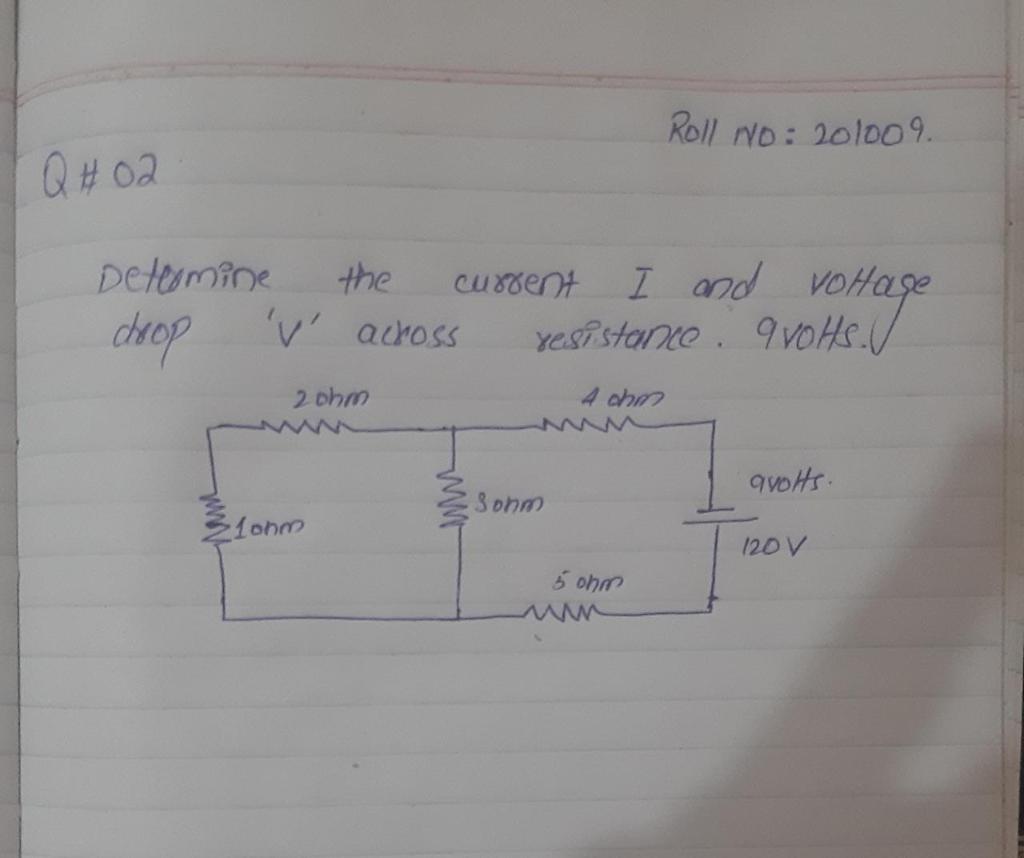 Roll NO: 201009.
Q # 02
Determine the current I and voltage
drop 'v' across resistance. 9volts.
2 ohm 4 ohm
9volts.
1 ohm 3 ohm
120 V
5 ohm